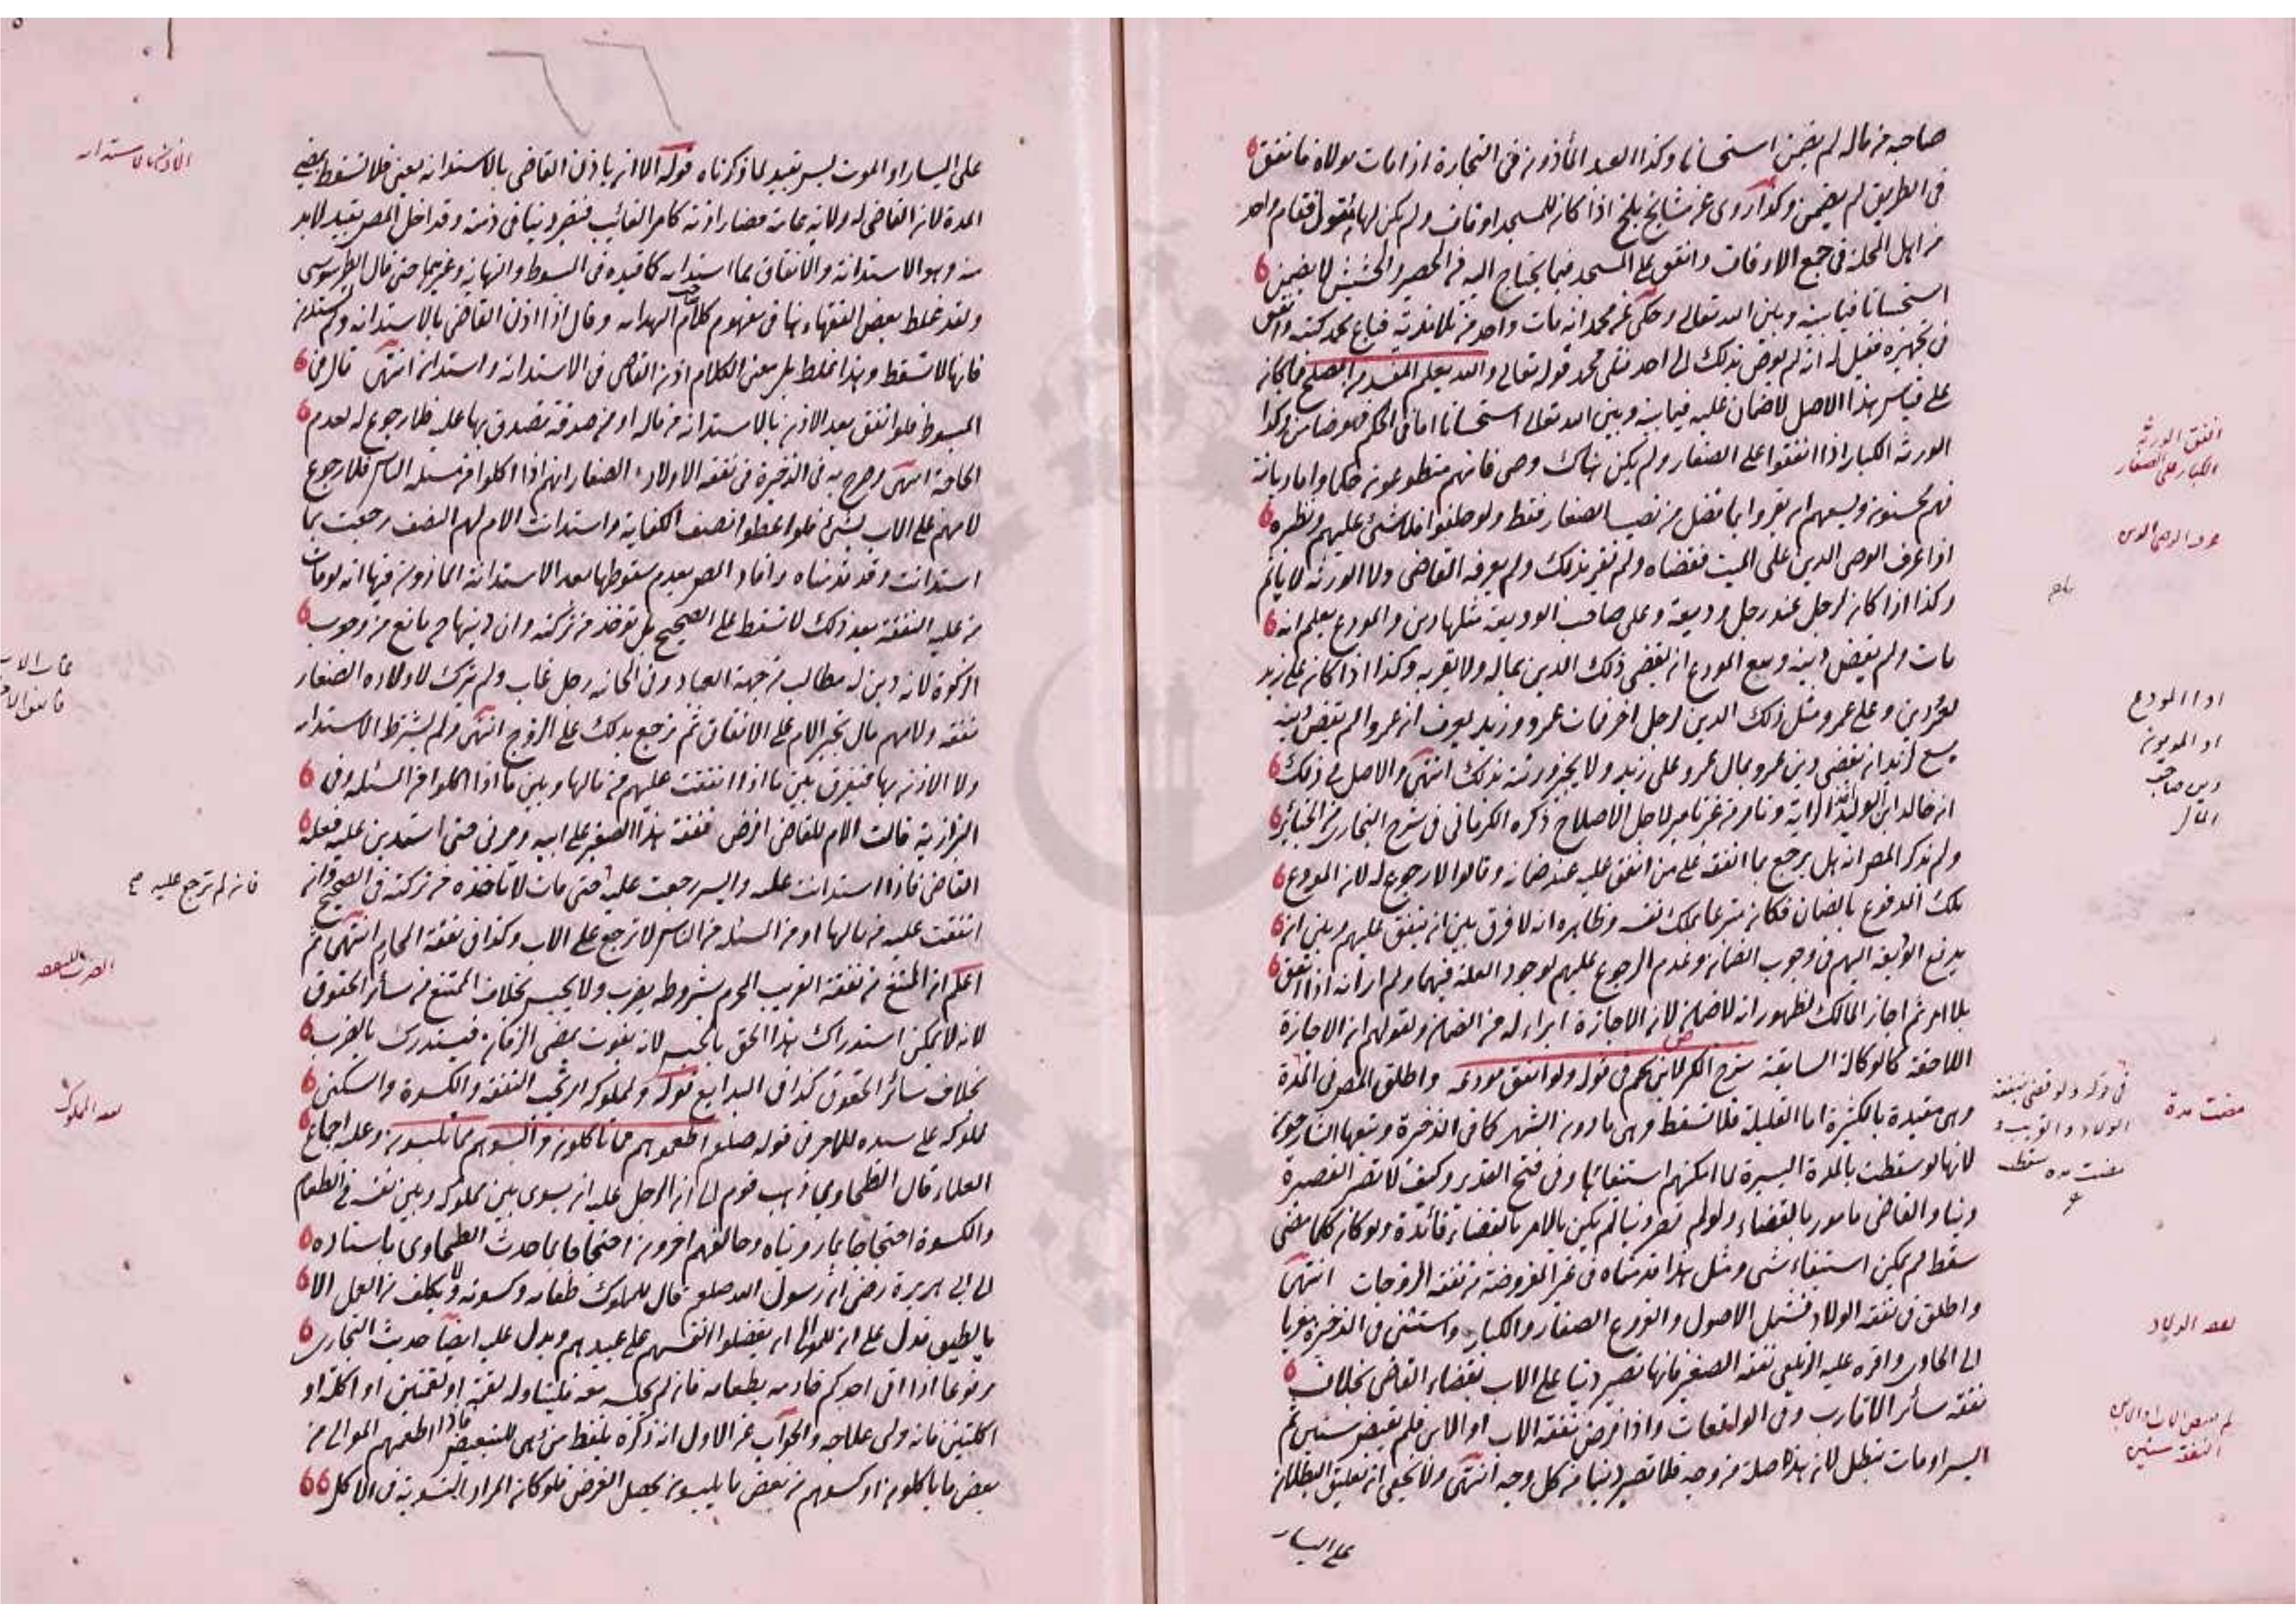 صاحبه من ماله لم يضمن استحسانا وكذا العبد المأذون في التجارة اذا مات مولاه فانفق
في الطريق لم يضمن وكذا روى عن مشايخ بلخ اذا كان للمسجد اوقاف ولم يكن لها متولي فقام واحد
من اهل المحلة في جمع الاوقاف وانفق على المسجد فيما يحتاج اليه من الحصير والحشيش لا يضمن
استحسانا فيما بينه وبين الله تعالى وحكى عن محمد انه مات واحد من تلامذته فباع محمد كتبه وانفق
في تجهيزه فقيل له انه لم يوص بذلك الى احد فتلى محمد قوله تعالى والله يعلم المفسد من المصلح فما كان
على قياس هذا الاصل لا ضمان عليه فيما بينه وبين الله تعالى استحسانا اما في الحكم فهو ضامن وكذا
الورثة الكبار اذا انفقوا على الصغار ولم يكن هناك وصي فانهم متطوعون حكما واما ديانة
فهم محسنون ويسعهم ان يقروا بما فضل من نصيب الصغار فقط ولو حلفوا فلا شئ عليهم ونظيره
اذا عرف الوصي الدين على الميت فقضاه ولم يقر بذلك ولم يعرفه القاضي ولا الورثة لا ياثم
وكذا اذا كان لرجل عند رجل وديعة وعلى صاحب الوديعة مثلها دين والمودع يعلم انه
مات ولم يقض دينه وسع المودع ان يقضي ذلك الدين بماله ولا يقر به وكذا اذا كان على زيد
لعمرو دين وعلى عمرو مثل ذلك الدين لرجل اخر فمات عمرو وزيد يعرف ان عمروا لم يقض دينه
يسع لزيد ان يقضي دين عمرو بمال عمرو على زيد ولا يخبر ورثته بذلك انتهى والاصل في ذلك
ان خالد ابن الوليد اخذ الراية وتامر من غير تامير لاجل الاصلاح ذكره الكرماني في شرح البخاري من الجنائز
ولم يذكر المص انه هل يرجع بما انفقه على من انفق عليه عند ضمانه وقالوا لا رجوع له لان المودع
ملك المدفوع بالضمان فكان متبرعا بملك نفسه وظاهره انه لا فرق بين ان ينفق عليهم وبين ان
يدفع الوديعة اليهم في وجوب الضمان وعدم الرجوع عليهم لوجود العلة فيهما ولم ار انه اذا انفق
بلا امر ثم اجاز المالك لظهور انه لا ضمان لان الاجازة ابراء له من الضمان ولقولهم ان الاجازة
اللاحقة كالوكالة السابقة شرح الكنز لابن نجيم في قوله ولو انفق مودعه واطلق المص في المدة
وهي مقيدة بالكثيرة اما القليلة فلا تسقط وهي ما دون الشهر كما في الذخيرة وتبعها الشارحون
لانها لو سقطت بالمدة اليسيرة لما امكنهم استيفائها وفي فتح القدير وكيف لا تصير القصيرة
دينا والقاضي مامور بالقضاء ولو لم تصر دينا لم يكن بالامر بالقضاء فائدة ولو كان كلما مضى
سقط لم يمكن استيفاء شي ومثل هذا قدمناه في غير المفروضة من نفقة الزوجات انتهى
واطلق في نفقة الولاد فشمل الاصول والفروع الصغار والكبار واستثنى في الذخيرة معزيا
الى الحاوي واقره عليه الزيلعي نفقة الصغير فانها تصير دينا على الاب بقضاء القاضي بخلاف
نفقة سائر الاقارب وفي الواقعات واذا فرض نفقة الاب او الابن فلم يقبض سنين ثم
ايسر او مات تبطل لان هذه صلة من وجه فلا تصير دينا من كل وجه انتهى ولا يخفى ان تعليق البطلان
على اليسار
انفق الورثة
الكبار على الصغار
عرف الوصي الدين
اذا المودع
او المديون
دين صاحب
المال
مضت مدة
في قوله ولو قضى بنفقة
الولاد والقريب و
مضت مدة سقطت
نفقة الولاد
لم يقبض الاب او الابن
النفقة سنين
على اليسار او الموت ليس بقيد لما ذكرناه قوله الا ان ياذن القاضي بالاستدانة يعني فلا تسقط بمضي
المدة لان القاضي له ولاية عامة فصار اذنه كامر الغائب فتصير دينا في ذمته وقد اخل المص بقيد لا بد
منه وهو الاستدانة والانفاق بما استدانه كما قيده في المبسوط والنهاية وغيرهما حتى قال الطرسوسي
ولقد غلط بعض الفقهاء هنا في مفهوم كلام صاحب الهداية وقال اذا اذن القاضي بالاستدانة ولم يستدن
فانها لا تسقط وهذا غلط بل معنى الكلام اذن القاضي في الاستدانة واستدان انتهى قال في
المبسوط فلو انفق بعد الاذن بالاستدانة من ماله او من صدقة تصدق بها عليه فلا رجوع له لعدم
الحاجة انتهى وصرح به في الذخيرة في نفقة الاولاد الصغار انهم اذا اكلوا من مسئلة الناس فلا رجوع
لامهم على الاب بشئ فلو اعطوا نصف الكفاية واستدانت الام لهم النصف رجعت بما
استدانت وقد قدمناه وافاد المص بعدم سقوطها بعد الاستدانة الماذون فيها انه لو مات
من عليه النفقة بعد ذلك لا تسقط على الصحيح بل تؤخذ من تركته وان دينها ح مانع من وجوب
الزكوة لانه دين له مطالب من جهة العباد وفي الخانية رجل غاب ولم يترك لاولاده الصغار
نفقة ولامهم مال تجبر الام على الانفاق ثم ترجع بذلك على الزوج انتهى ولم يشترط الاستدانة
ولا الاذن بها فيفرق بين ما اذا انفقت عليهم من مالها وبين ما اذا اكلوا من المسئلة وفي
البزازية قالت الام للقاضي افرض نفقة هذا الصغير على ابيه ومرني حتى استدين عليه ففعله
القاضي فاذا استدانت عليه وايسر رجعت عليه حتى مات لا تاخذه من تركته في الصحيح وان
انفقت عليه من مالها او من المسئلة من الناس لا ترجع على الاب وكذا في نفقة المحارم انتهى ثم
اعلم ان الممتنع من نفقة القريب المحرم بشروطه يضرب ولا يحبس بخلاف الممتنع من سائر الحقوق
لانه لا يمكن استدراك هذا الحق بالحبس لانه يفوت بمضي الزمان فيستدرك بالضرب
بخلاف سائر الحقوق كذا في البدايع قوله ولمملوكه اي تجب النفقة والكسوة والسكنى
لمملوكه على سيده للامر في قوله صلعم اطعموهم مما تاكلون والبسوهم مما تلبسون وعليه اجماع
العلماء قال الطحاوي ذهب قوم الى ان الرجل عليه ان يسوى بين مملوكه وبين نفسه في الطعام
والكسوة احتجاجا بما رويناه وخالفهم اخرون احتجاجا بما حدث الطحاوي باسناده
الى ابي هريرة رضي ان رسول الله صلعم قال للمملوك طعامه وكسوته ولا يكلف من العمل الا
ما يطيق فدل على ان للموالى ان يفضلوا انفسهم على عبيدهم ويدل عليه ايضا حديث البخاري
مرفوعا اذا اتى احدكم خادمه بطعامه فان لم يجلسه معه فليناوله لقمة او لقمتين او اكلة او
اكلتين فانه ولى علاجه والجواب عن الاول انه ذكره بلفظ من هي للتبعيض فاذا اطعمهم الموالى من
بعض ما ياكلون او كسوهم من بعض ما يلبسون يحصل الغرض فلو كان المراد التسوية في الاكل
الاذن بالاستدانة
غاب الاب
فان لم ترجع عليه صح
نفقة المملوك